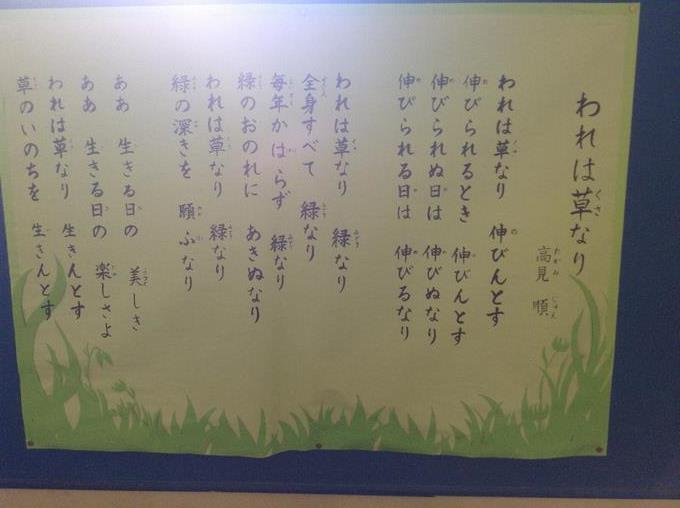 われは草なり
高見 順
われは草なり 伸びんとす
伸びられるとき 伸びんとす
伸びられぬ日は 伸びぬなり
伸びられる日は 伸びるなり
われは草なり 緑なり
全身すべて 緑なり
毎年かはらず 緑なり
緑のおのれに あきぬなり
われは草なり 緑なり
緑の深きを 願ふなり
ああ 生きる日の 美しき
ああ 生きる日の 楽しさよ
われは草なり 生きんとす
草のいのちを 生きんとす